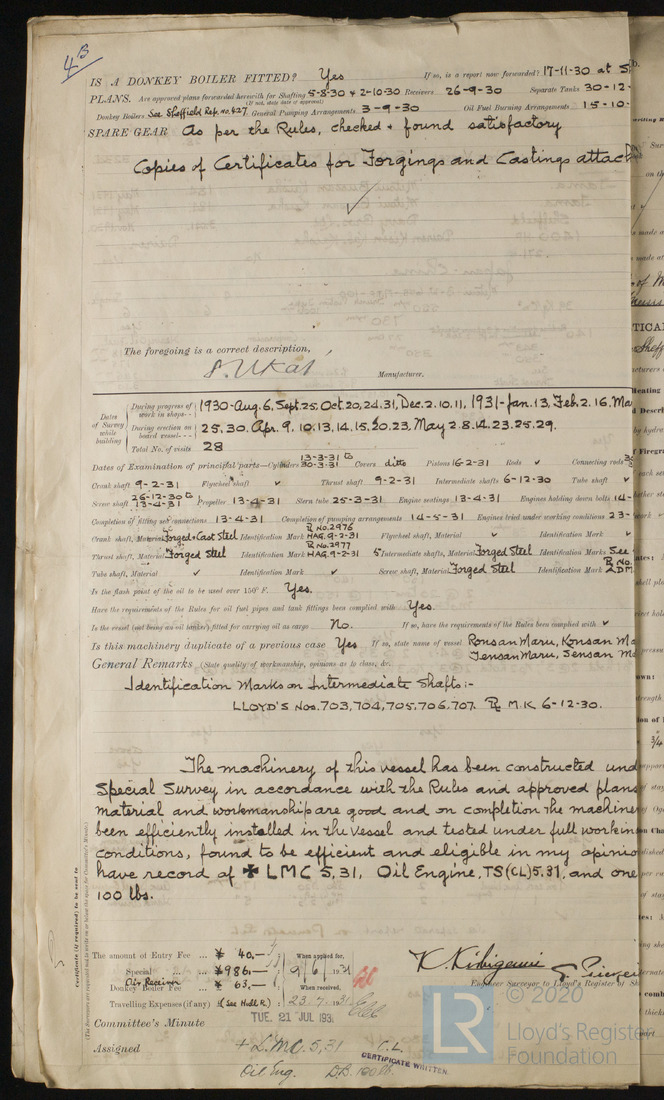 4B
IS A DONKEY BOILER FITTED? Yes If so, is a report now forwarded? 17-11-30 at S
PLANS. Are approved plans forwarded herewith for Shafting 5-8-30 & 2-10-30 Receivers 26-9-30 Separate Tanks 30-12-
(If not, state date of approval)
Donkey Boilers See Sheffield Rep. no. 427. General Pumping Arrangements 3-9-30 Oil Fuel Burning Arrangements 15-10-
SPARE GEAR As per the Rules, checked & found satisfactory
Copies of Certificates for Forgings and Castings attach
The foregoing is a correct description,
Manufacturer.
Dates of Survey while building
During progress of work in shops-- 1930-Aug. 6, Sept. 25, Oct. 20, 24, 31, Dec. 2. 10. 11, 1931-Jan. 13, Feb. 2. 16. Ma
During erection on board vessel--- 25, 30, Apr. 9, 10. 13. 14. 15. 20. 23, May 2. 8. 14. 23. 25. 29.
Total No. of visits 28
Dates of Examination of principal parts—Cylinders 13-3-31 to 30-3-31 Covers ditto Pistons 16-2-31 Rods ✓ Connecting rods
Crank shaft 9-2-31 Flywheel shaft ✓ Thrust shaft 9-2-31 Intermediate shafts 6-12-30 Tube shaft ✓
Screw shaft 26-12-30 to 13-4-31 Propeller 13-4-31 Stern tube 25-3-31 Engine seatings 13-4-31 Engines holding down bolts 14-
Completion of fitting sea connections 13-4-31 Completion of pumping arrangements 14-5-31 Engines tried under working conditions 23-
Crank shaft, Material Forged & Cast Steel Identification Mark R No. 2976 HAG. 9-2-31 Flywheel shaft, Material ✓ Identification Mark ✓
Thrust shaft, Material Forged Steel Identification Mark R No. 2977 HAG. 9-2-31 5 Intermediate shafts, Material Forged Steel Identification Marks See
Tube shaft, Material ✓ Identification Mark ✓ Screw shaft, Material Forged Steel Identification Mark R No.
Is the flash point of the oil to be used over 150° F. Yes.
Have the requirements of the Rules for oil fuel pipes and tank fittings been complied with Yes.
Is the vessel (not being an oil tanker) fitted for carrying oil as cargo No. If so, have the requirements of the Rules been complied with ✓
Is this machinery duplicate of a previous case Yes If so, state name of vessel Ronsan Maru, Konsan Ma
Tensan Maru, Sensan M
General Remarks (State quality of workmanship, opinions as to class, &c.
Identification Marks on Intermediate Shafts:-
LLOYD'S Nos. 703, 704, 705, 706, 707. R M.K 6-12-30.
The machinery of this vessel has been constructed und
Special Survey in accordance with the Rules and approved plans
material and workmanship are good and on completion the machine
been efficiently installed in the vessel and tested under full workin
conditions, found to be efficient and eligible in my opinio
have record of ✠ LMC 5,31, Oil Engine, TS(CL) 5.31, and one
100 lbs.
Certificate (if required) to be sent to
The amount of Entry Fee .. ¥ 40.— When applied for,
Special ... ¥986.— 9/6/1931
Air Receiver
Donkey Boiler Fee ... ¥ 63.— When received,
Travelling Expenses (if any) ¥ 23.7.1931
K. Kirigami
Engineer Surveyor to Lloyd's Register of Sh
Committee's Minute TUE. 21 JUL 193
Assigned + LMC. 5,31 C.L.
Oil Eng. D.B. 100 lb.
CERTIFICATE WRITTEN.
LR © 2020
Lloyd's Register
Foundation